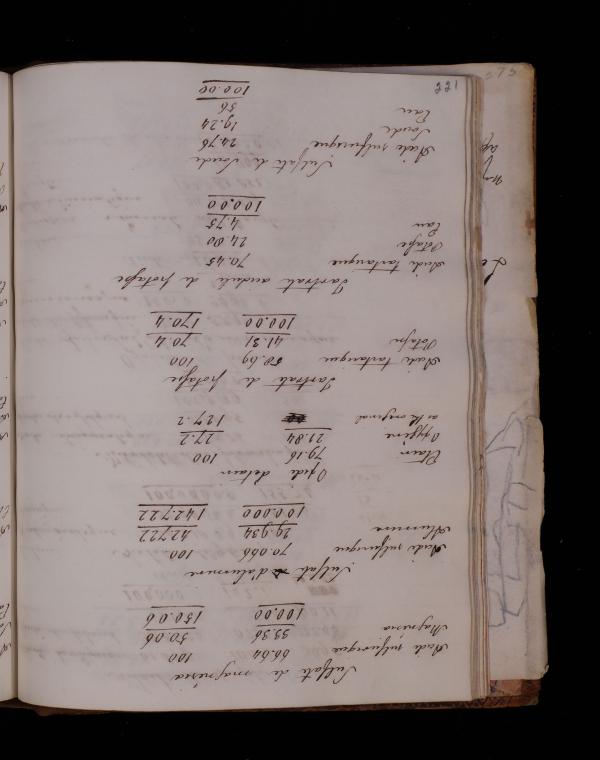 221
Sulfate de magnesia
Acide sulfurique 66.64 100
Magnesia 33.36 50.06
100.00 150.06
Sulfate d'alumine
Acide sulfurique 70.066 100
Alumine 29.934 42.722
100.000 142.722
Oxide detain
Etain 79.16 100
Oxygene 21.84 27.2
original 127.2
Tartrate de potasse
Acide tartarique 58.69 100
Potasse 41.31 70.4
100.00 170.4
Tartrate acidule de potasse
Acide tartarique 70.45
Potasse 24.80
Eau 4.75
100.00
Sulfate de Soude
Acide sulfurique 24.76
Soude 19.24
Eau 56
100.00